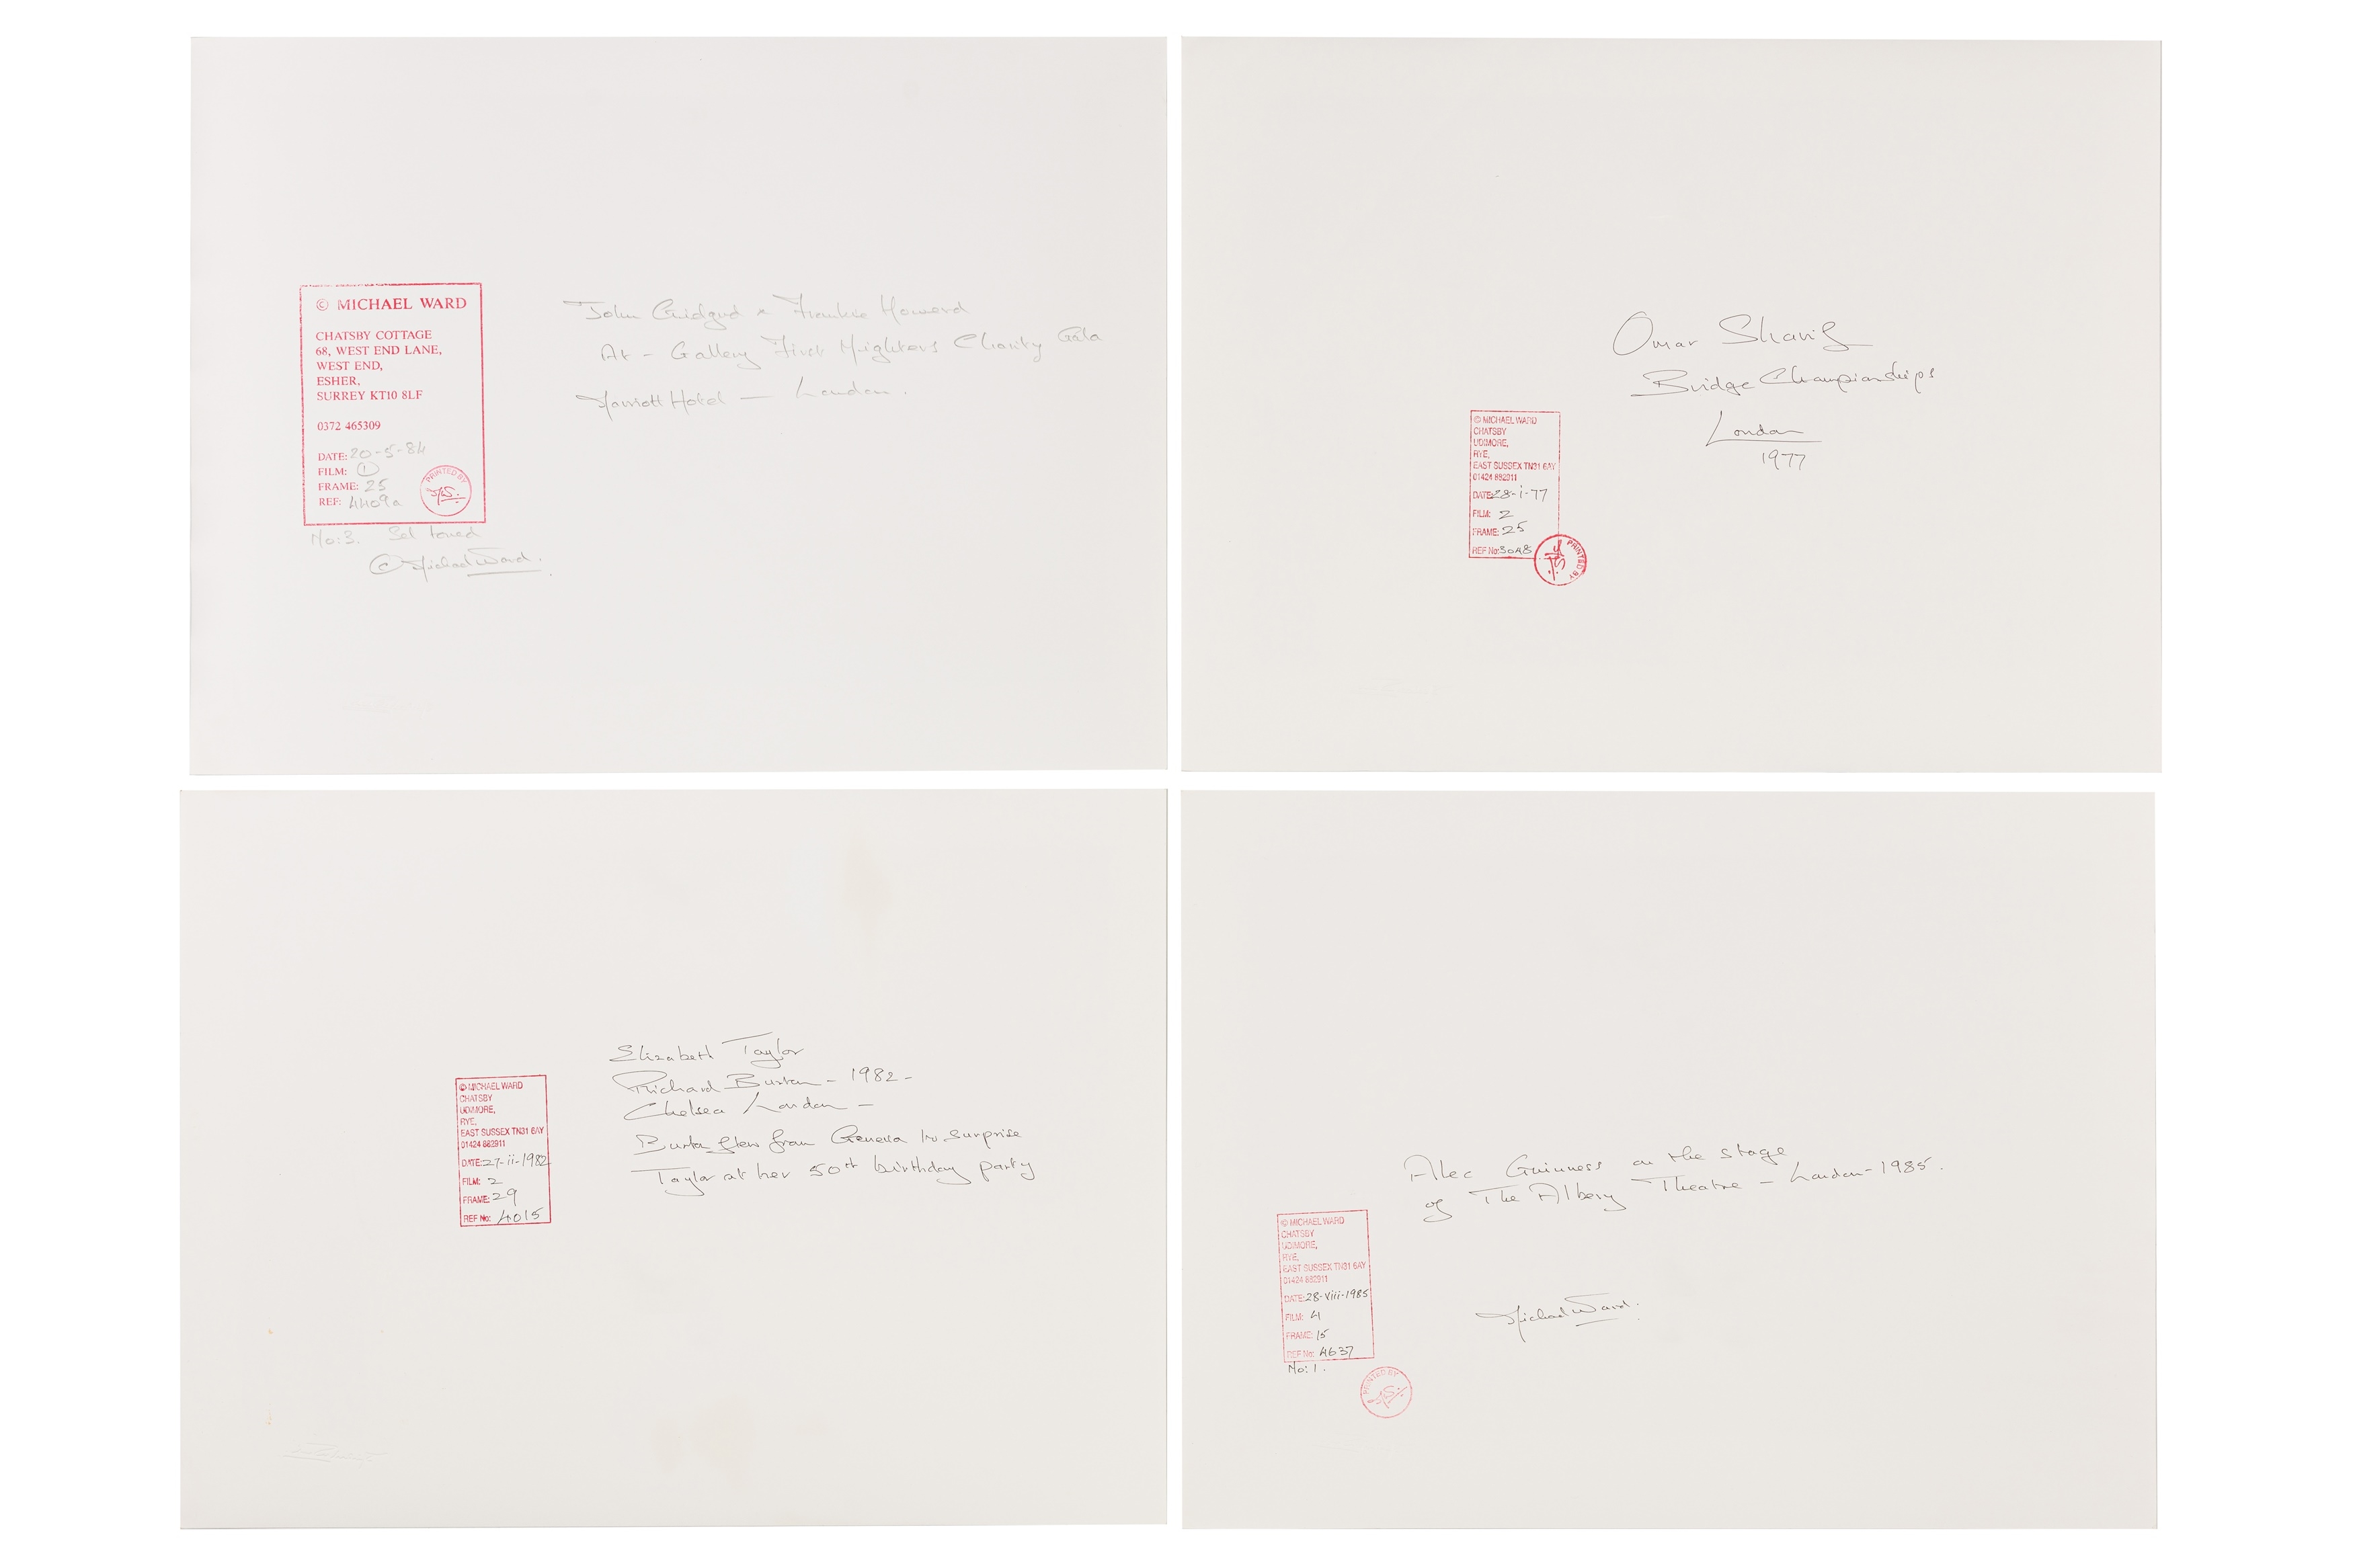 © MICHAEL WARD
CHATSBY COTTAGE
68, WEST END LANE,
WEST END,
ESHER,
SURREY KT10 8LF
0372 465309
DATE: 20-5-84
FILM: 1
FRAME: 25
REF: 4409a
PRINTED BY
No: 3. Sel toned
© Michael Ward.
John Gielgud & Frankie Howerd
At - Gallery First Nighters Charity Gala
Marriott Hotel — London.
Omar Sharif
Bridge Championships
London
1977
© MICHAEL WARD
CHATSBY
UDIMORE,
RYE,
EAST SUSSEX TN31 6AY
01424 882911
DATE: 28-i-77
FILM: 2
FRAME: 25
REF No: 3048
PRINTED BY
Elizabeth Taylor
Richard Burton - 1982 -
Chelsea London -
Burton flew from Geneva to surprise
Taylor at her 50th birthday party
© MICHAEL WARD
CHATSBY
UDIMORE,
RYE,
EAST SUSSEX TN31 6AY
01424 882911
DATE: 27-ii-1982
FILM: 2
FRAME: 29
REF No: 4015
Alec Guinness on the stage
of The Albery Theatre - London - 1985.
© MICHAEL WARD
CHATSBY
UDIMORE,
RYE,
EAST SUSSEX TN31 6AY
01424 882911
DATE: 28-viii-1985
FILM: 4
FRAME: 15
REF No: 4637
No: 1.
PRINTED BY
Michael Ward.